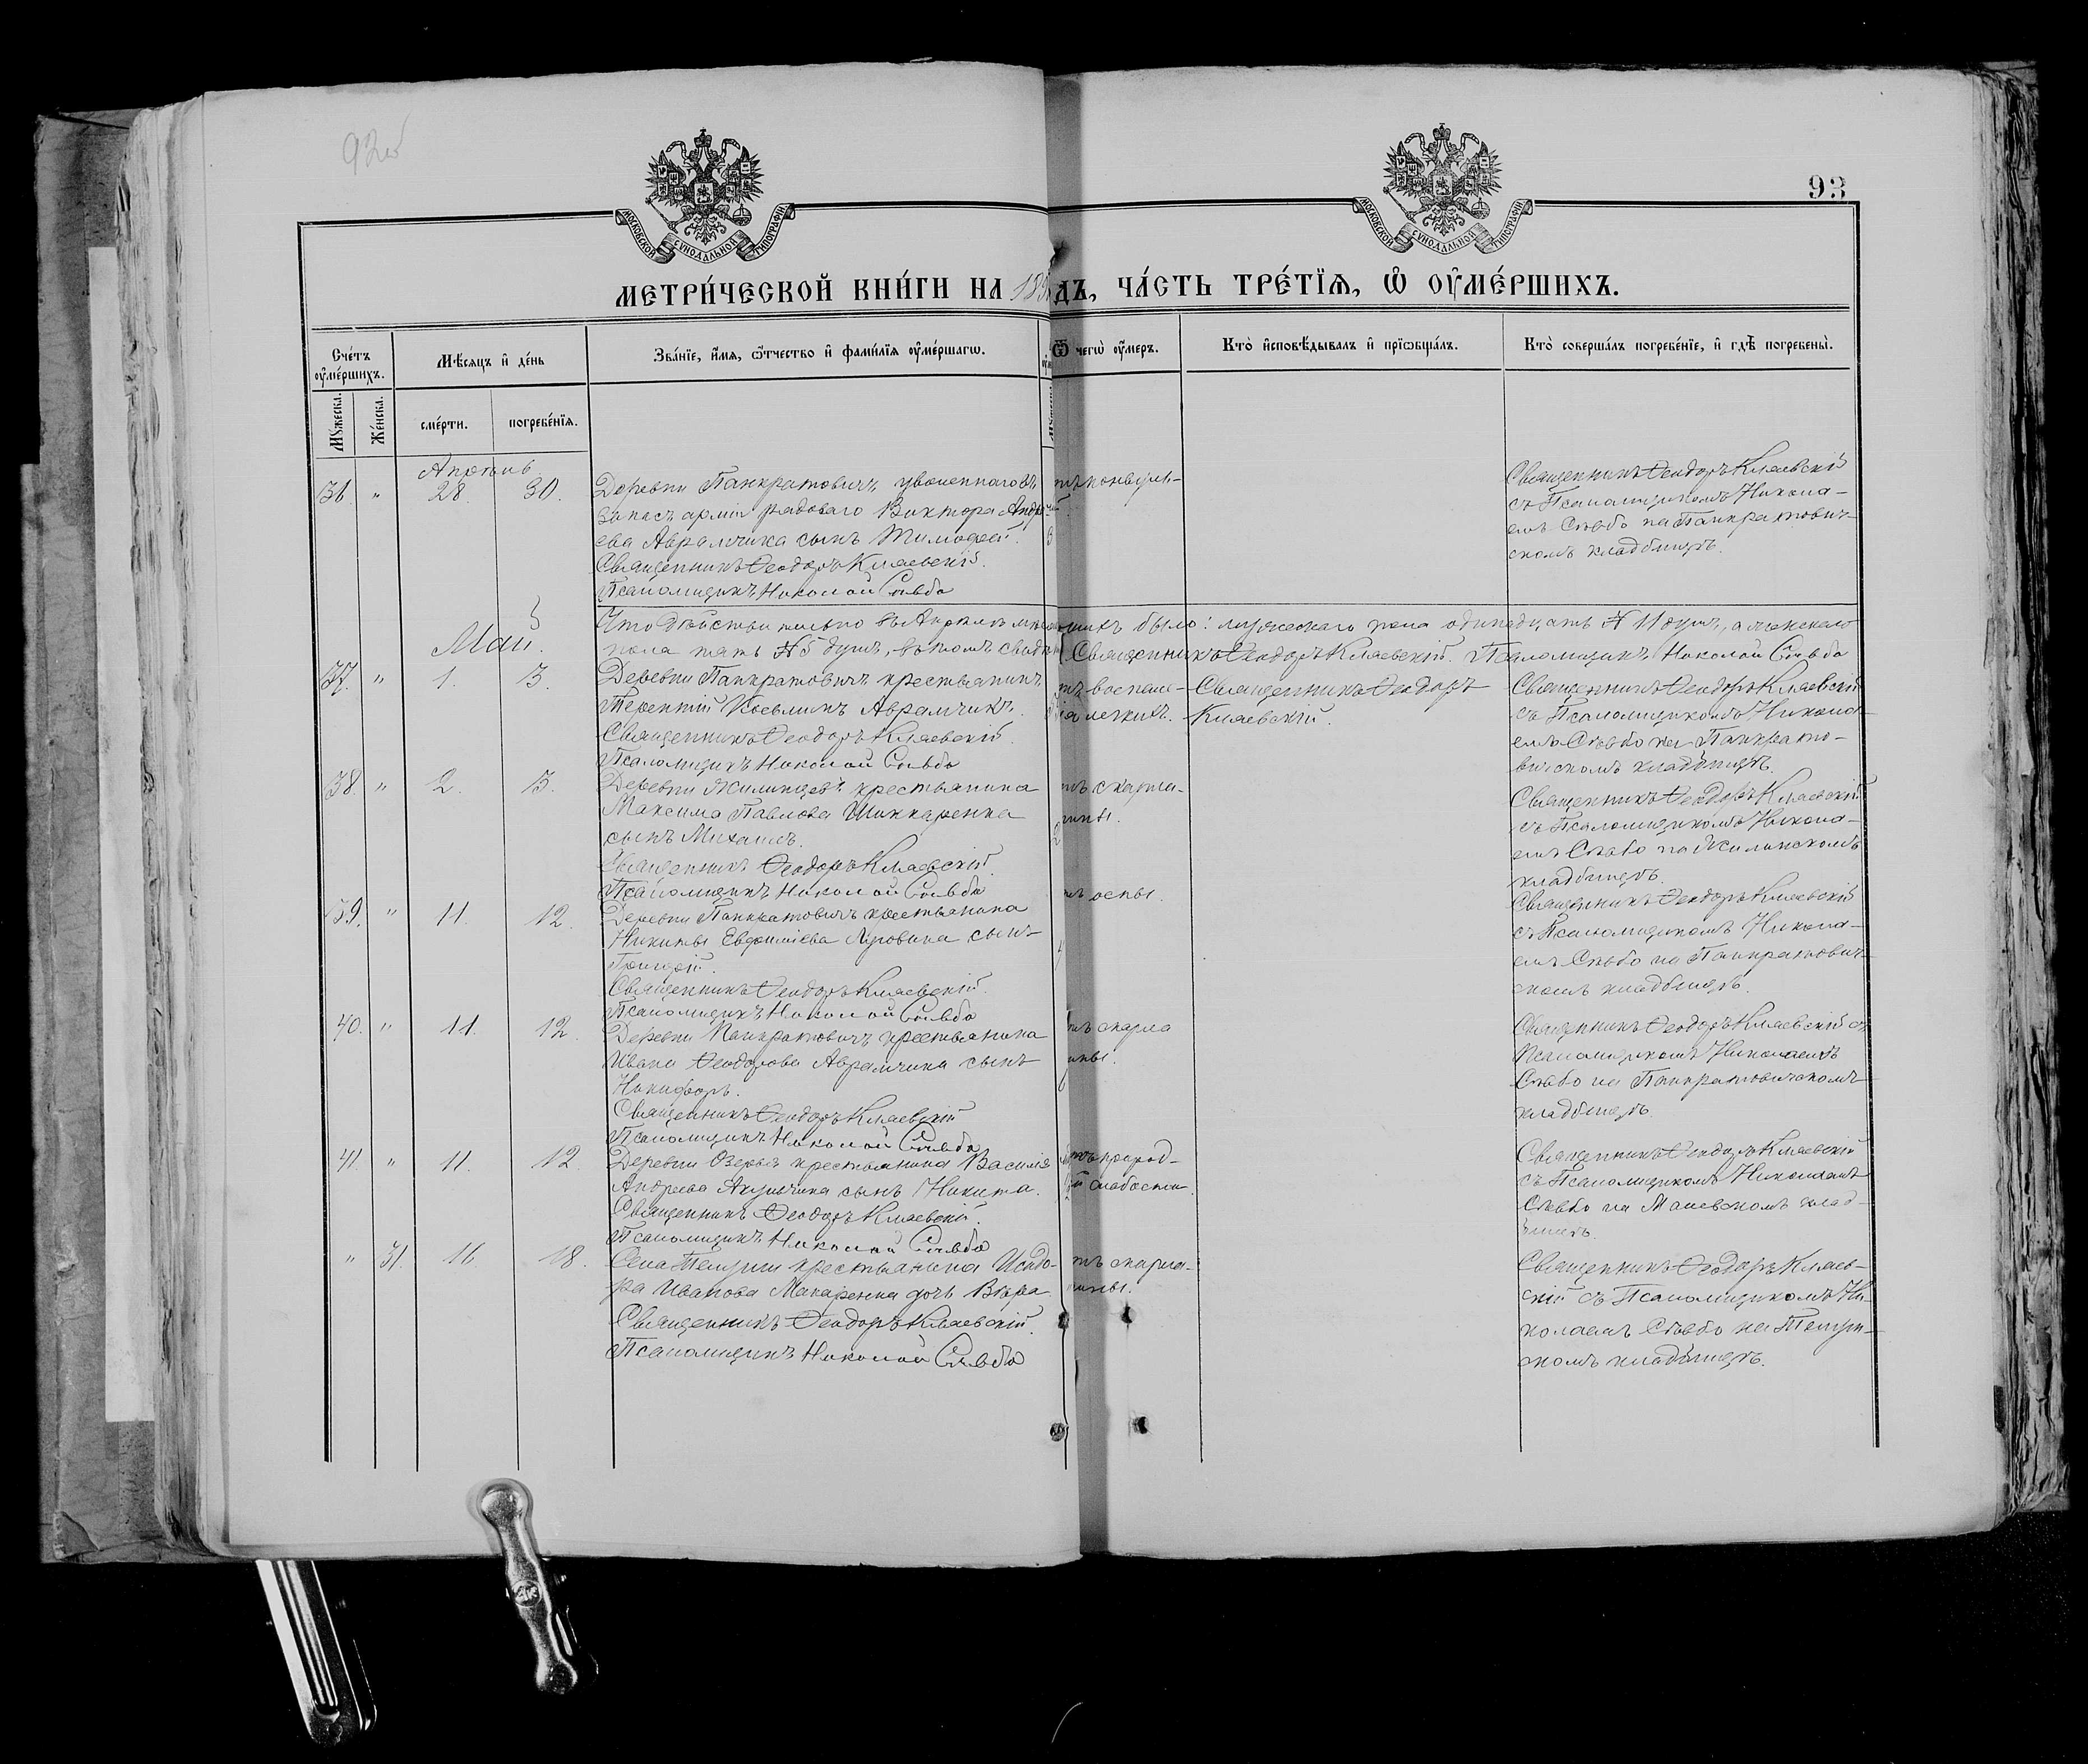 92об
93
МОСКОВСКОЙ СѴНОДАЛЬНОЙ ТИПОГРАФІИ
МОСКОВСКОЙ СѴНОДАЛЬНОЙ ТИПОГРАФІИ
МЕТРИ́ЧЕСКОЙ КНИ́ГИ НА 189
ДЪ, ЧА́СТЬ ТРЕ́ТІѦ, Ѡ ОУМЕ́РШИХЪ.
Сче́тъ оумершихъ.
Мѣсяцъ и де́нь
Зва́ніе, и́мя, ѿтчество и фами́лія оуме́ршагѡ.
Ѿ чегѡ̀ оумеръ.
Кто̀ исповѣ́дывалъ и пріѡбща́лъ.
Кто̀ соверша́лъ погребе́ніе, и гдѣ̀ погребены̀.
Мꙋжеска.
Же́нска.
сме́рти.
погребе́нія.
Апрѣль
36. " 28. 30.
Деревни Панкратовичъ уволеннаго въ
запасъ арміи рядоваго Виктора Андре-
ева Аврамчика сынъ Тимофей.
Священникъ Ѳеодоръ Кляевскій.
Псаломщикъ Николай Сльбо
Священникъ Ѳеодоръ Кляевскій
съ Псаломщикомъ Никола-
емъ на Панкратович-
скомъ кладбищѣ.
Что дѣйствительно въ Апрѣлѣ
было: мужескаго пола одинадцать № 11 душъ, а женскаго
пола пять № 5 душъ, въ томъ
Священникъ Ѳеодоръ Кляевскій. Псаломщикъ Николай
Май.
37. " 1. 3.
Деревни Панкратовичъ крестьянинъ
Терентій Косьминъ Аврамчикъ.
Священникъ Ѳеодоръ Кляевскій.
Псаломщикъ Николай
тъ воспале-
ія легкихъ.
Священникъ Ѳеодоръ
Кляевскій.
Священникъ Ѳеодоръ Кляевскій
съ Псаломщикомъ Никола-
емъ на Панкрато-
вичскомъ кладбищѣ.
38. " 2. 3.
Деревни Жилинцевъ крестьянина
Максима Павлова Шинкаренка
сынъ Михаилъ.
Священникъ Ѳеодоръ Кляевскій
Псаломщикъ Николай
тъ скарла-
тины.
2
Священникъ Ѳеодоръ Кляевскій
съ Псаломщикомъ Никола-
емъ на Жилинскомъ
кладбищѣ.
39. " 11. 12.
Деревни Панкратовичъ крестьянина
Никиты Евфиміева сынъ
Григорій.
Священникъ Ѳеодоръ Кляевскій.
Псаломщикъ Николай
тъ оспы.
Священникъ Ѳеодоръ Кляевскій
съ Псаломщикомъ Никола-
емъ на Панкратович-
скомъ кладбищѣ.
40. " 11. 12.
Деревни Панкратовичъ крестьянина
Ивана Ѳеодорова Аврамчика сынъ
Никифоръ.
Священникъ Ѳеодоръ Кляевскій
Псаломщикъ Николай
тъ скарла
тины.
Священникъ Ѳеодоръ Кляевскій съ
Псаломщикомъ Николаемъ
на Панкратовичскомъ
кладбищѣ.
41. " 11. 12.
Деревни крестьянина Василія
Андреева Акулича сынъ Никита.
Священникъ Ѳеодоръ Кляевскій.
Псаломщикъ Николай
природ-
й слабости.
Священникъ Ѳеодоръ Кляевскій
съ Псаломщикомъ Николаемъ
на клад-
бищѣ.
" 31. 16. 18.
Села крестьянина Исидо-
ра Иванова Макаренка дочь Вѣра
Священникъ Ѳеодоръ Кляевскій.
Псаломщикъ Николай
тъ скарла-
тины.
Священникъ Ѳеодоръ Кляев-
скій съ Псаломщикомъ Ни-
колаемъ на
скомъ кладбищѣ.